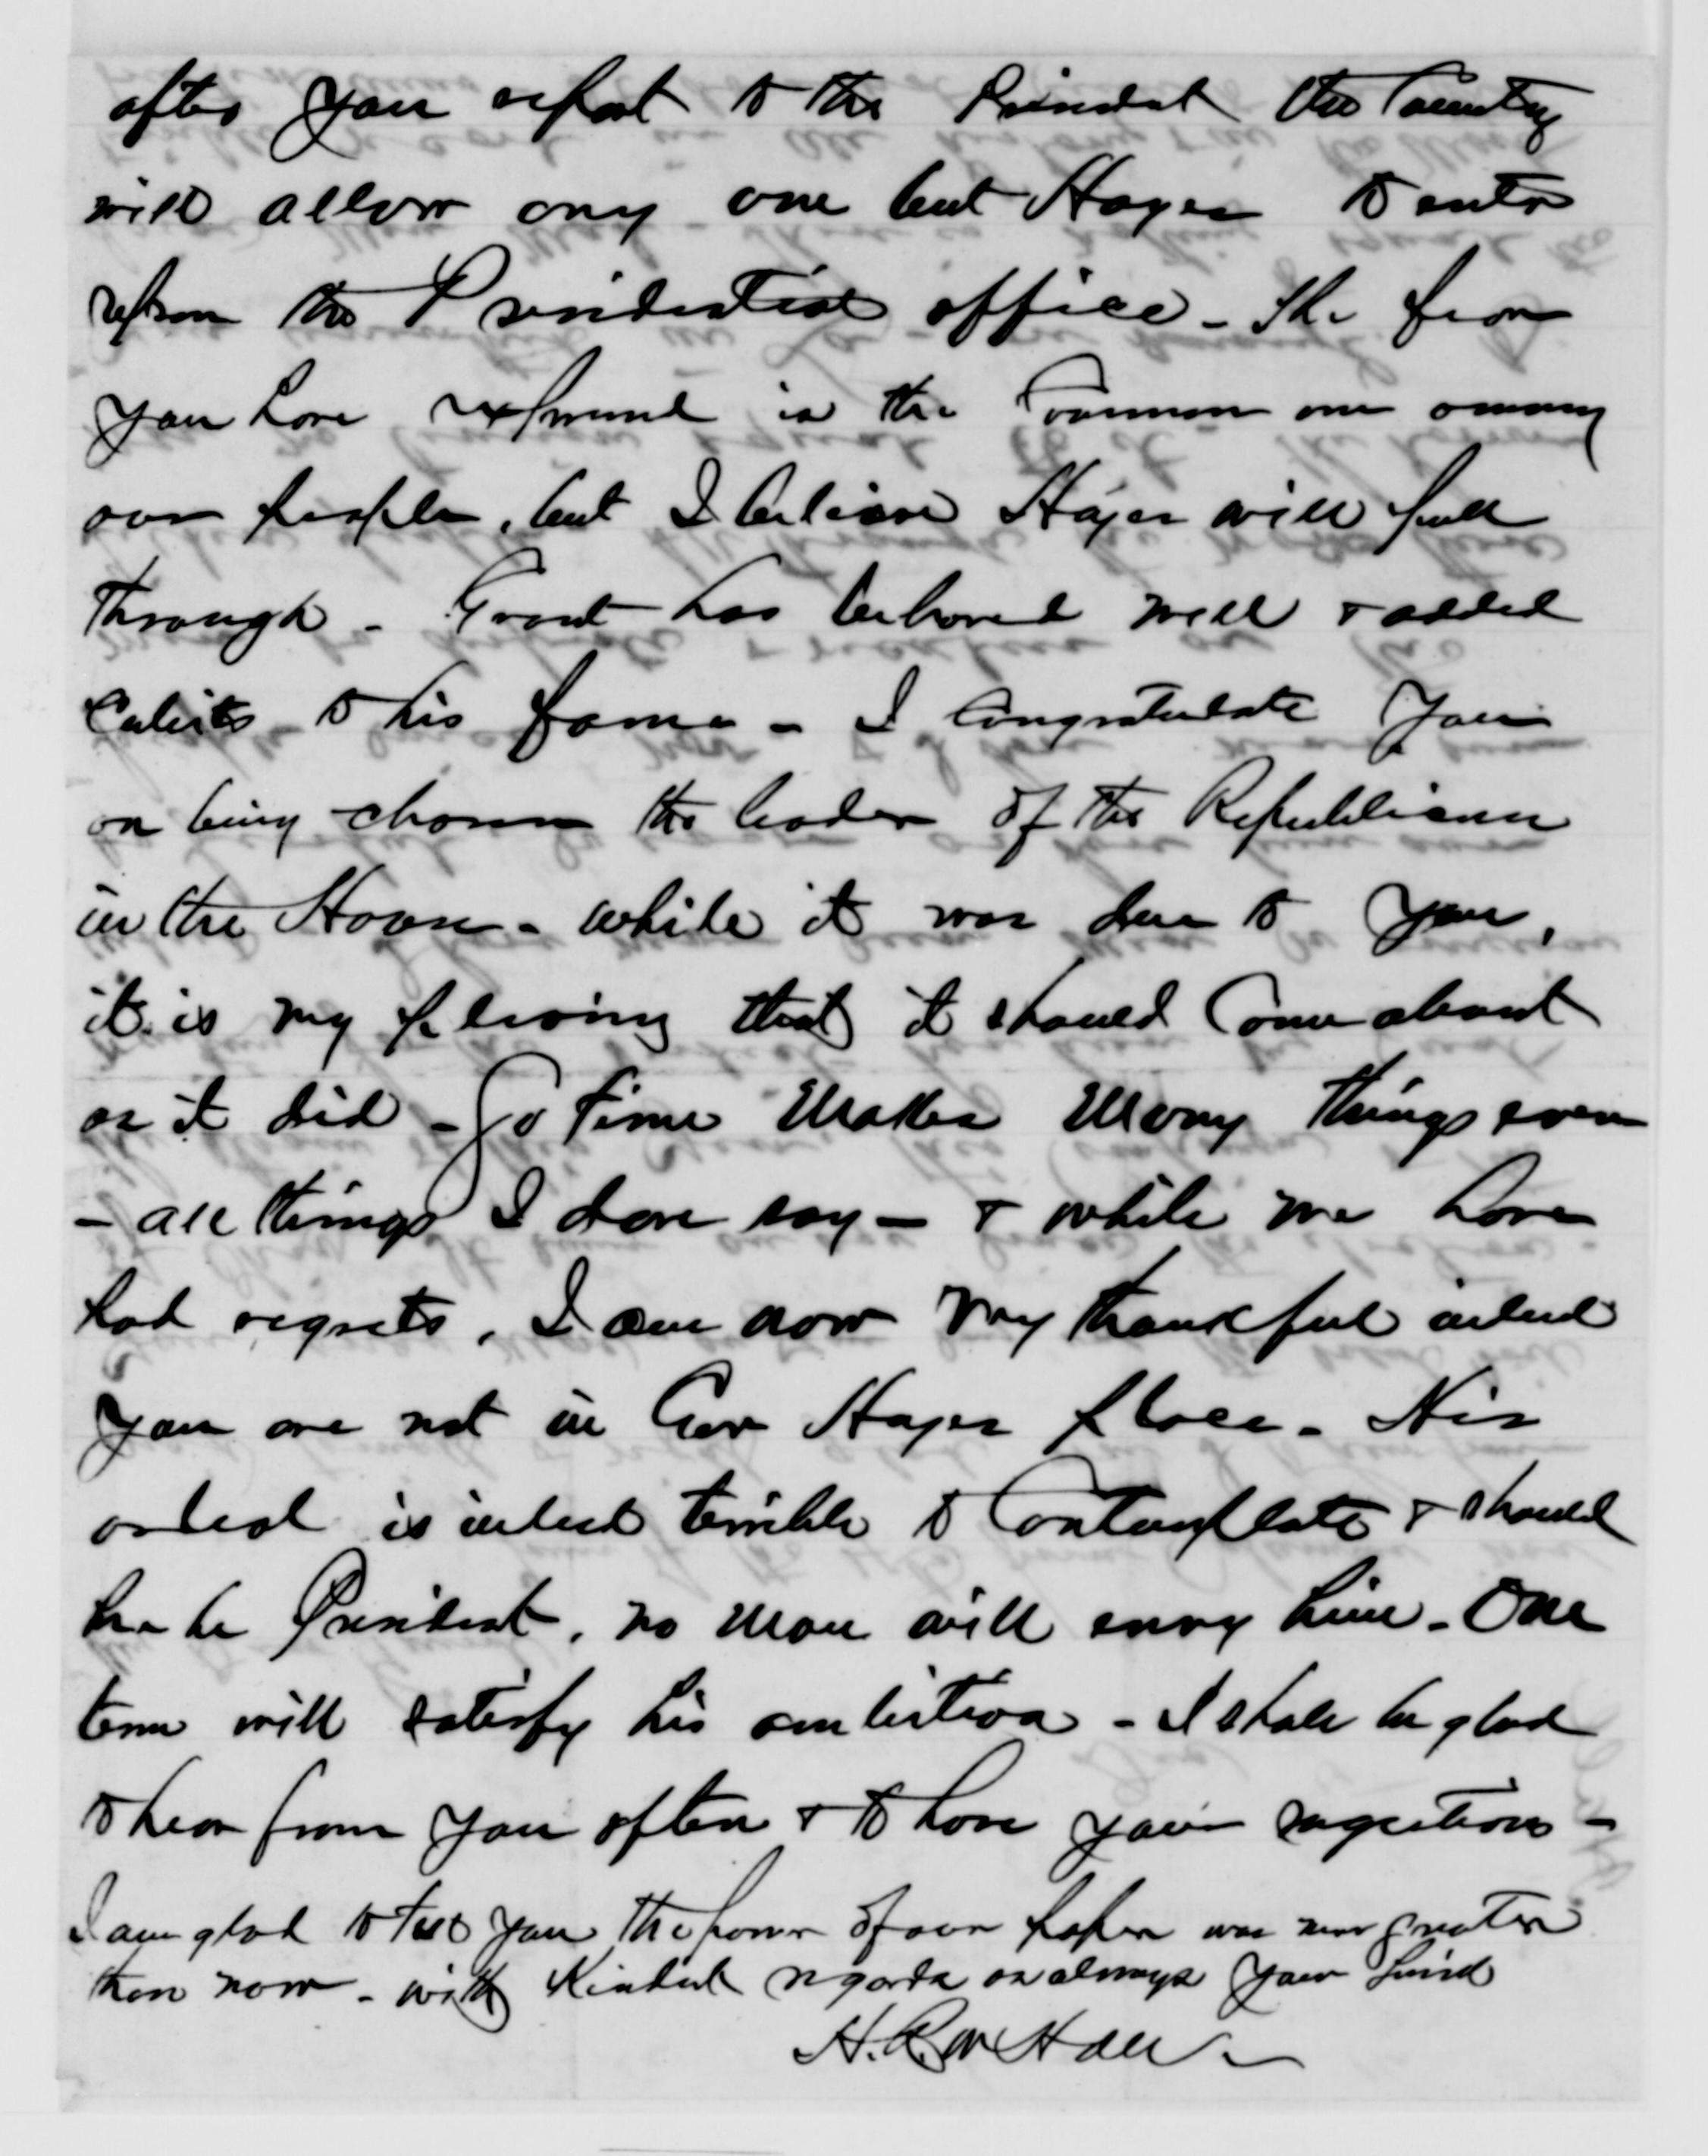 after you report to the President the Country
will allow any one but Hayes to enter
upon the Presidential office - The fear
you have expressed is the Common one among
our people, but I believe Hayes will pull
through - Grant has behaved well & added
Cubits to his fame - I congratulate you
on being chosen the leader of the Republicans
in the House - while it was due to you,
it is my pleasing that it should Come about
as it did - So time Makes Many things even
- all things I dare say - & while we have
had regrets, I am now very thankful indeed
you are not in Gov Hayes place - His
ordeal is indeed terrible to Contemplate & should
he be President, no Man will envy him - One
term will satisfy his ambition - I shall be glad
to hear from you often & to have your sugestions -
I am glad to tell you the power of our paper was never greater
than now - with Kindest regards as always your friend
H.